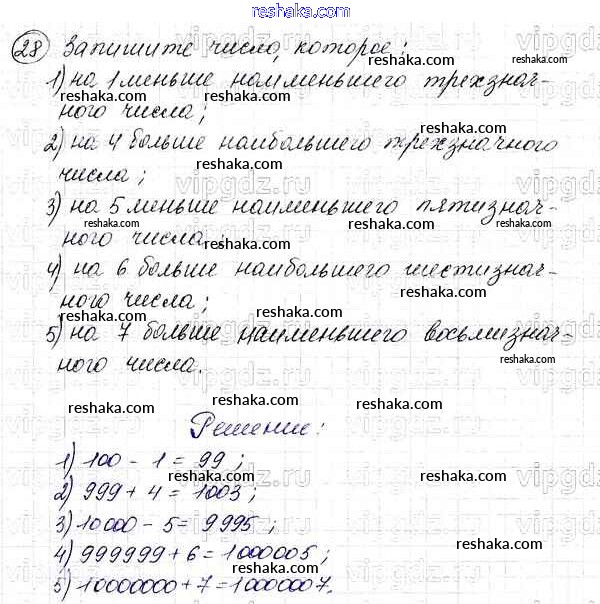 reshaka.com
28 Запишите число, которое:
reshaka.com
1) на 1 меньше наименьшего трехзнач-
reshaka.com reshaka.com
ного числа;
reshaka.com
2) на 4 больше наибольшего трехзначного
reshaka.com
числа;
reshaka.com
3) на 5 меньше наименьшего пятизнач-
reshaka.com
ного числа;
reshaka.com
4) на 6 больше наибольшего шестизнач-
reshaka.com
ного числа;
reshaka.com
5) на 7 больше наименьшего восьмизнач-
reshaka.com
ного числа.
reshaka.com reshaka.com
Решение:
reshaka.com
1) 100 - 1 = 99;
reshaka.com
2) 999 + 4 = 1003;
reshaka.com
3) 10000 - 5 = 9995;
reshaka.com
4) 999999 + 6 = 1000005;
reshaka.com
5) 10000000 + 7 = 1000007.
reshaka.com
vipgdz.ru